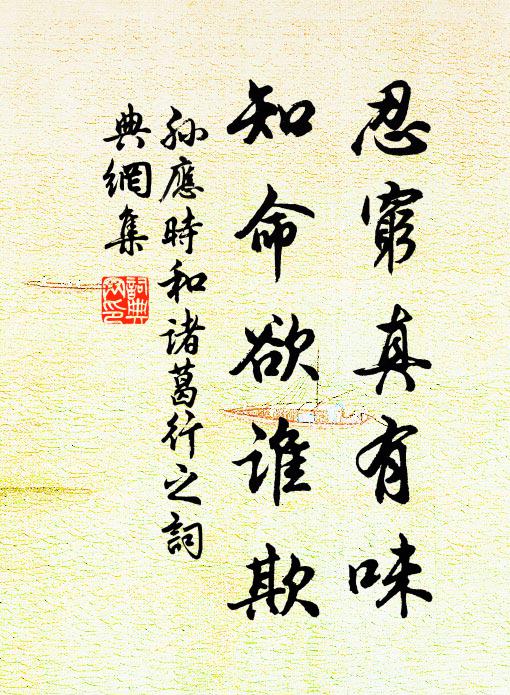 忍窮真有味
知命欲誰欺
孫應時和諸葛行之詞
典網集
詞典
网印